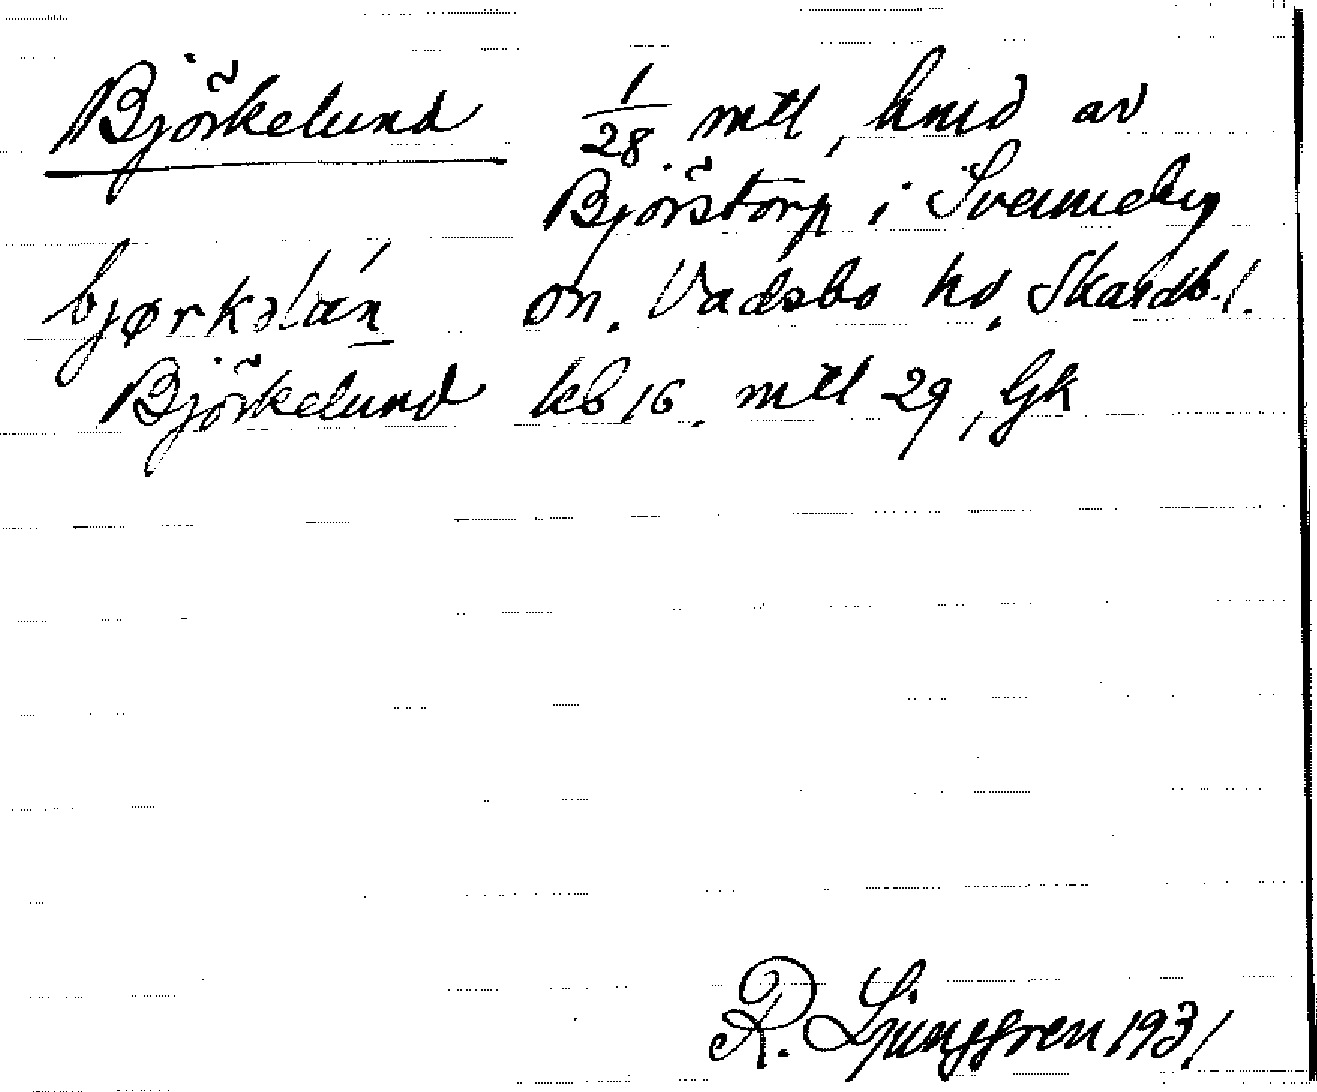 Björkelund 1/28 mtl, hmd av
Björstorp i Svenneby
bjørkəlán sn. Vadsbo hd. Skarab. l.
Björkelund kb 16. mtl 29, Gk
R. Ljunggren 1931